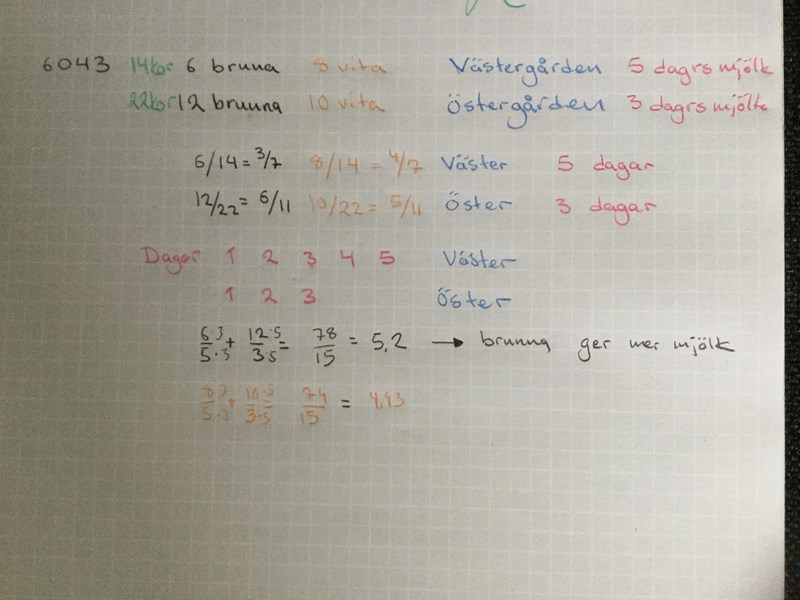 6043 14kor 6 bruna 8 vita Västergården 5 dagrs mjölk
22kor 12 bruuna 10 vita Östergården 3 dagrs mjölk
6/14 = 3/7 8/14 = 4/7 Väster 5 dagar
12/22 = 6/11 10/22 = 5/11 Öster 3 dagar
Dagar 1 2 3 4 5 Väster
1 2 3 Öster
6·3/5·3 + 12·5/3·5 = 78/15 = 5,2 → brunna ger mer mjölk
8·3/5·3 + 10·5/3·5 74/15 = 4,93